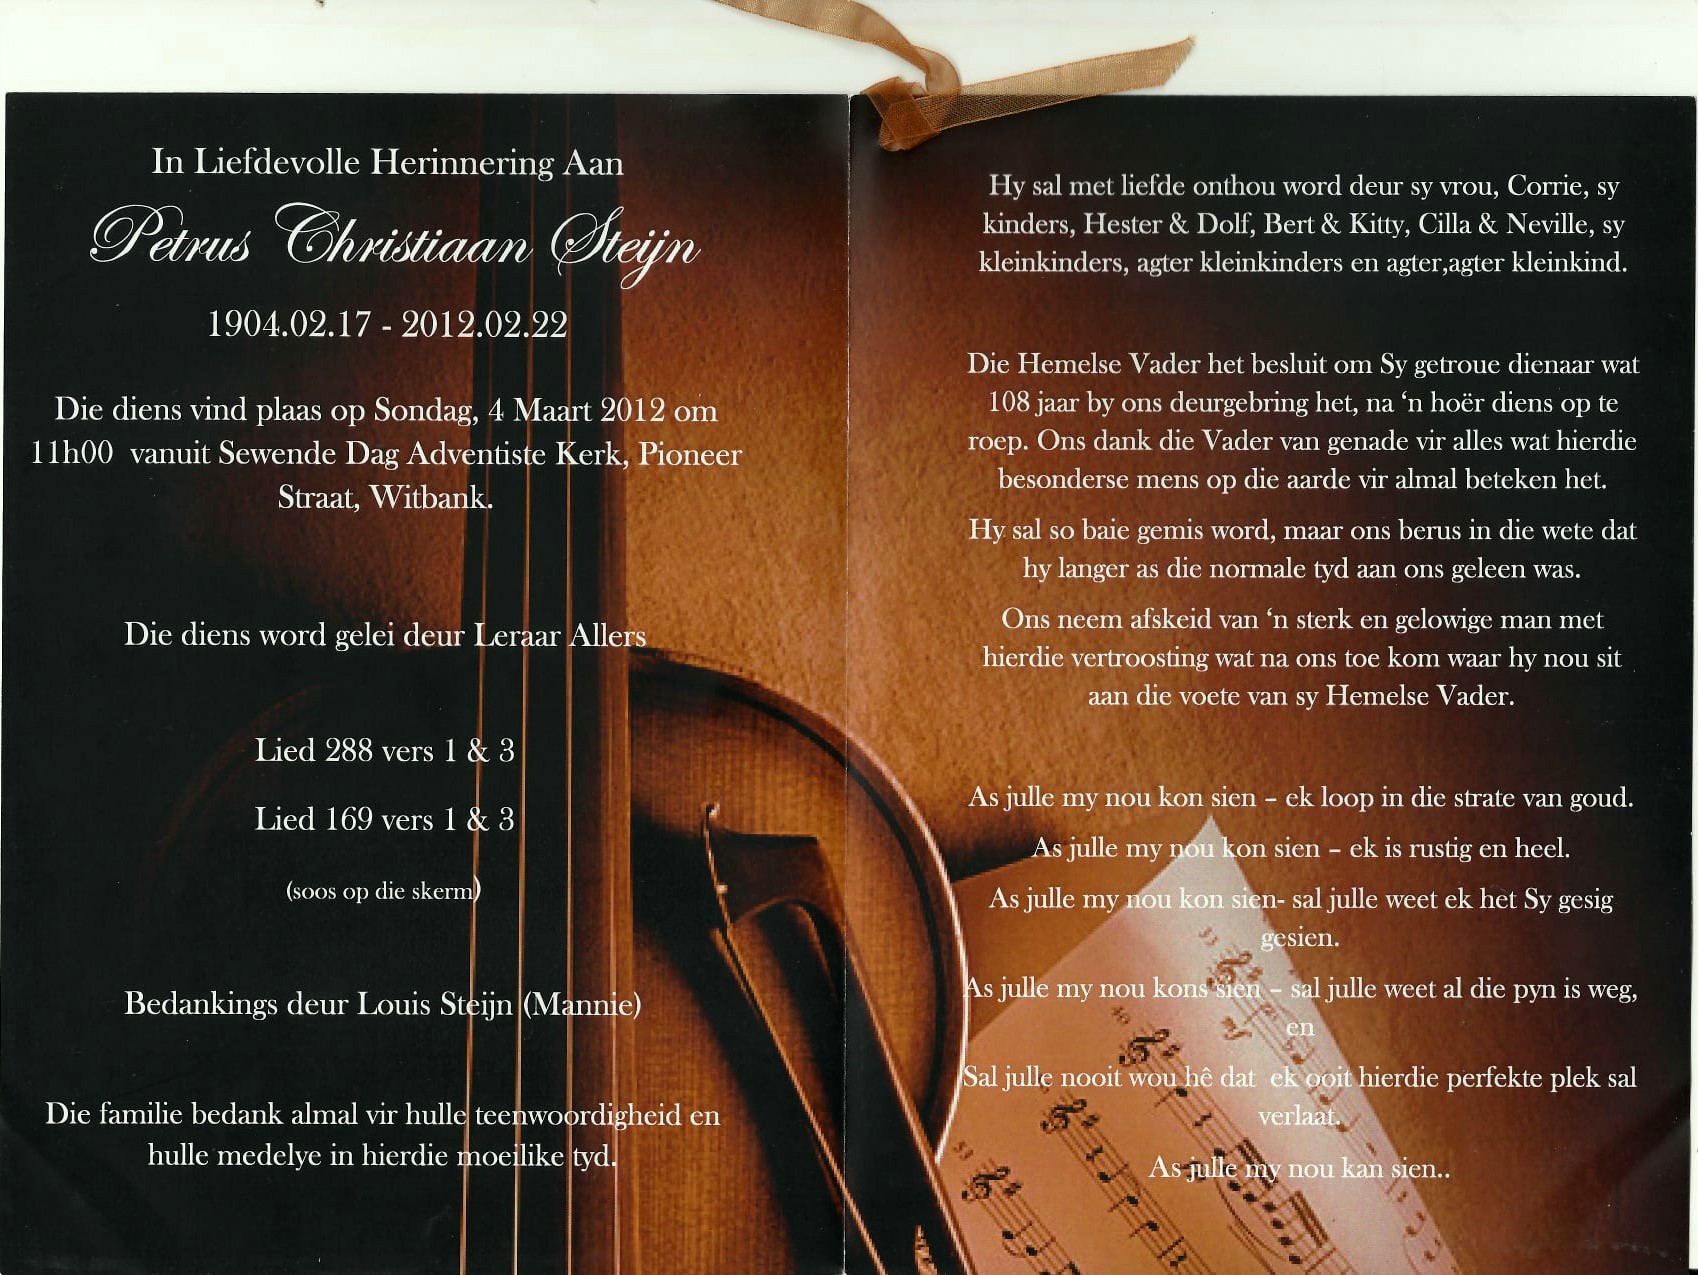 In Liefdevolle Herinnering Aan
Petrus Christiaan Steijn
1904.02.17 - 2012.02.22
Die diens vind plaas op Sondag, 4 Maart 2012 om
11h00 vanuit Sewende Dag Adventiste Kerk, Pioneer
Straat, Witbank.
Die diens word gelei deur Leraar Allers
Lied 288 vers 1 & 3
Lied 169 vers 1 & 3
(soos op die skerm)
Bedankings deur Louis Steijn (Mannie)
Die familie bedank almal vir hulle teenwoordigheid en
hulle medelye in hierdie moeilike tyd.
Hy sal met liefde onthou word deur sy vrou, Corrie, sy
kinders, Hester & Dolf, Bert & Kitty, Cilla & Neville, sy
kleinkinders, agter kleinkinders en agter,agter kleinkind.
Die Hemelse Vader het besluit om Sy getroue dienaar wat
108 jaar by ons deurgebring het, na ‘n hoër diens op te
roep. Ons dank die Vader van genade vir alles wat hierdie
besonderse mens op die aarde vir almal beteken het.
Hy sal so baie gemis word, maar ons berus in die wete dat
hy langer as die normale tyd aan ons geleen was.
Ons neem afskeid van ‘n sterk en gelowige man met
hierdie vertroosting wat na ons toe kom waar hy nou sit
aan die voete van sy Hemelse Vader.
As julle my nou kon sien – ek loop in die strate van goud.
As julle my nou kon sien – ek is rustig en heel.
As julle my nou kon sien- sal julle weet ek het Sy gesig
gesien.
As julle my nou kons sien – sal julle weet al die pyn is weg,
en
Sal julle nooit wou hê dat ek ooit hierdie perfekte plek sal
verlaat.
As julle my nou kan sien..
33
40
53